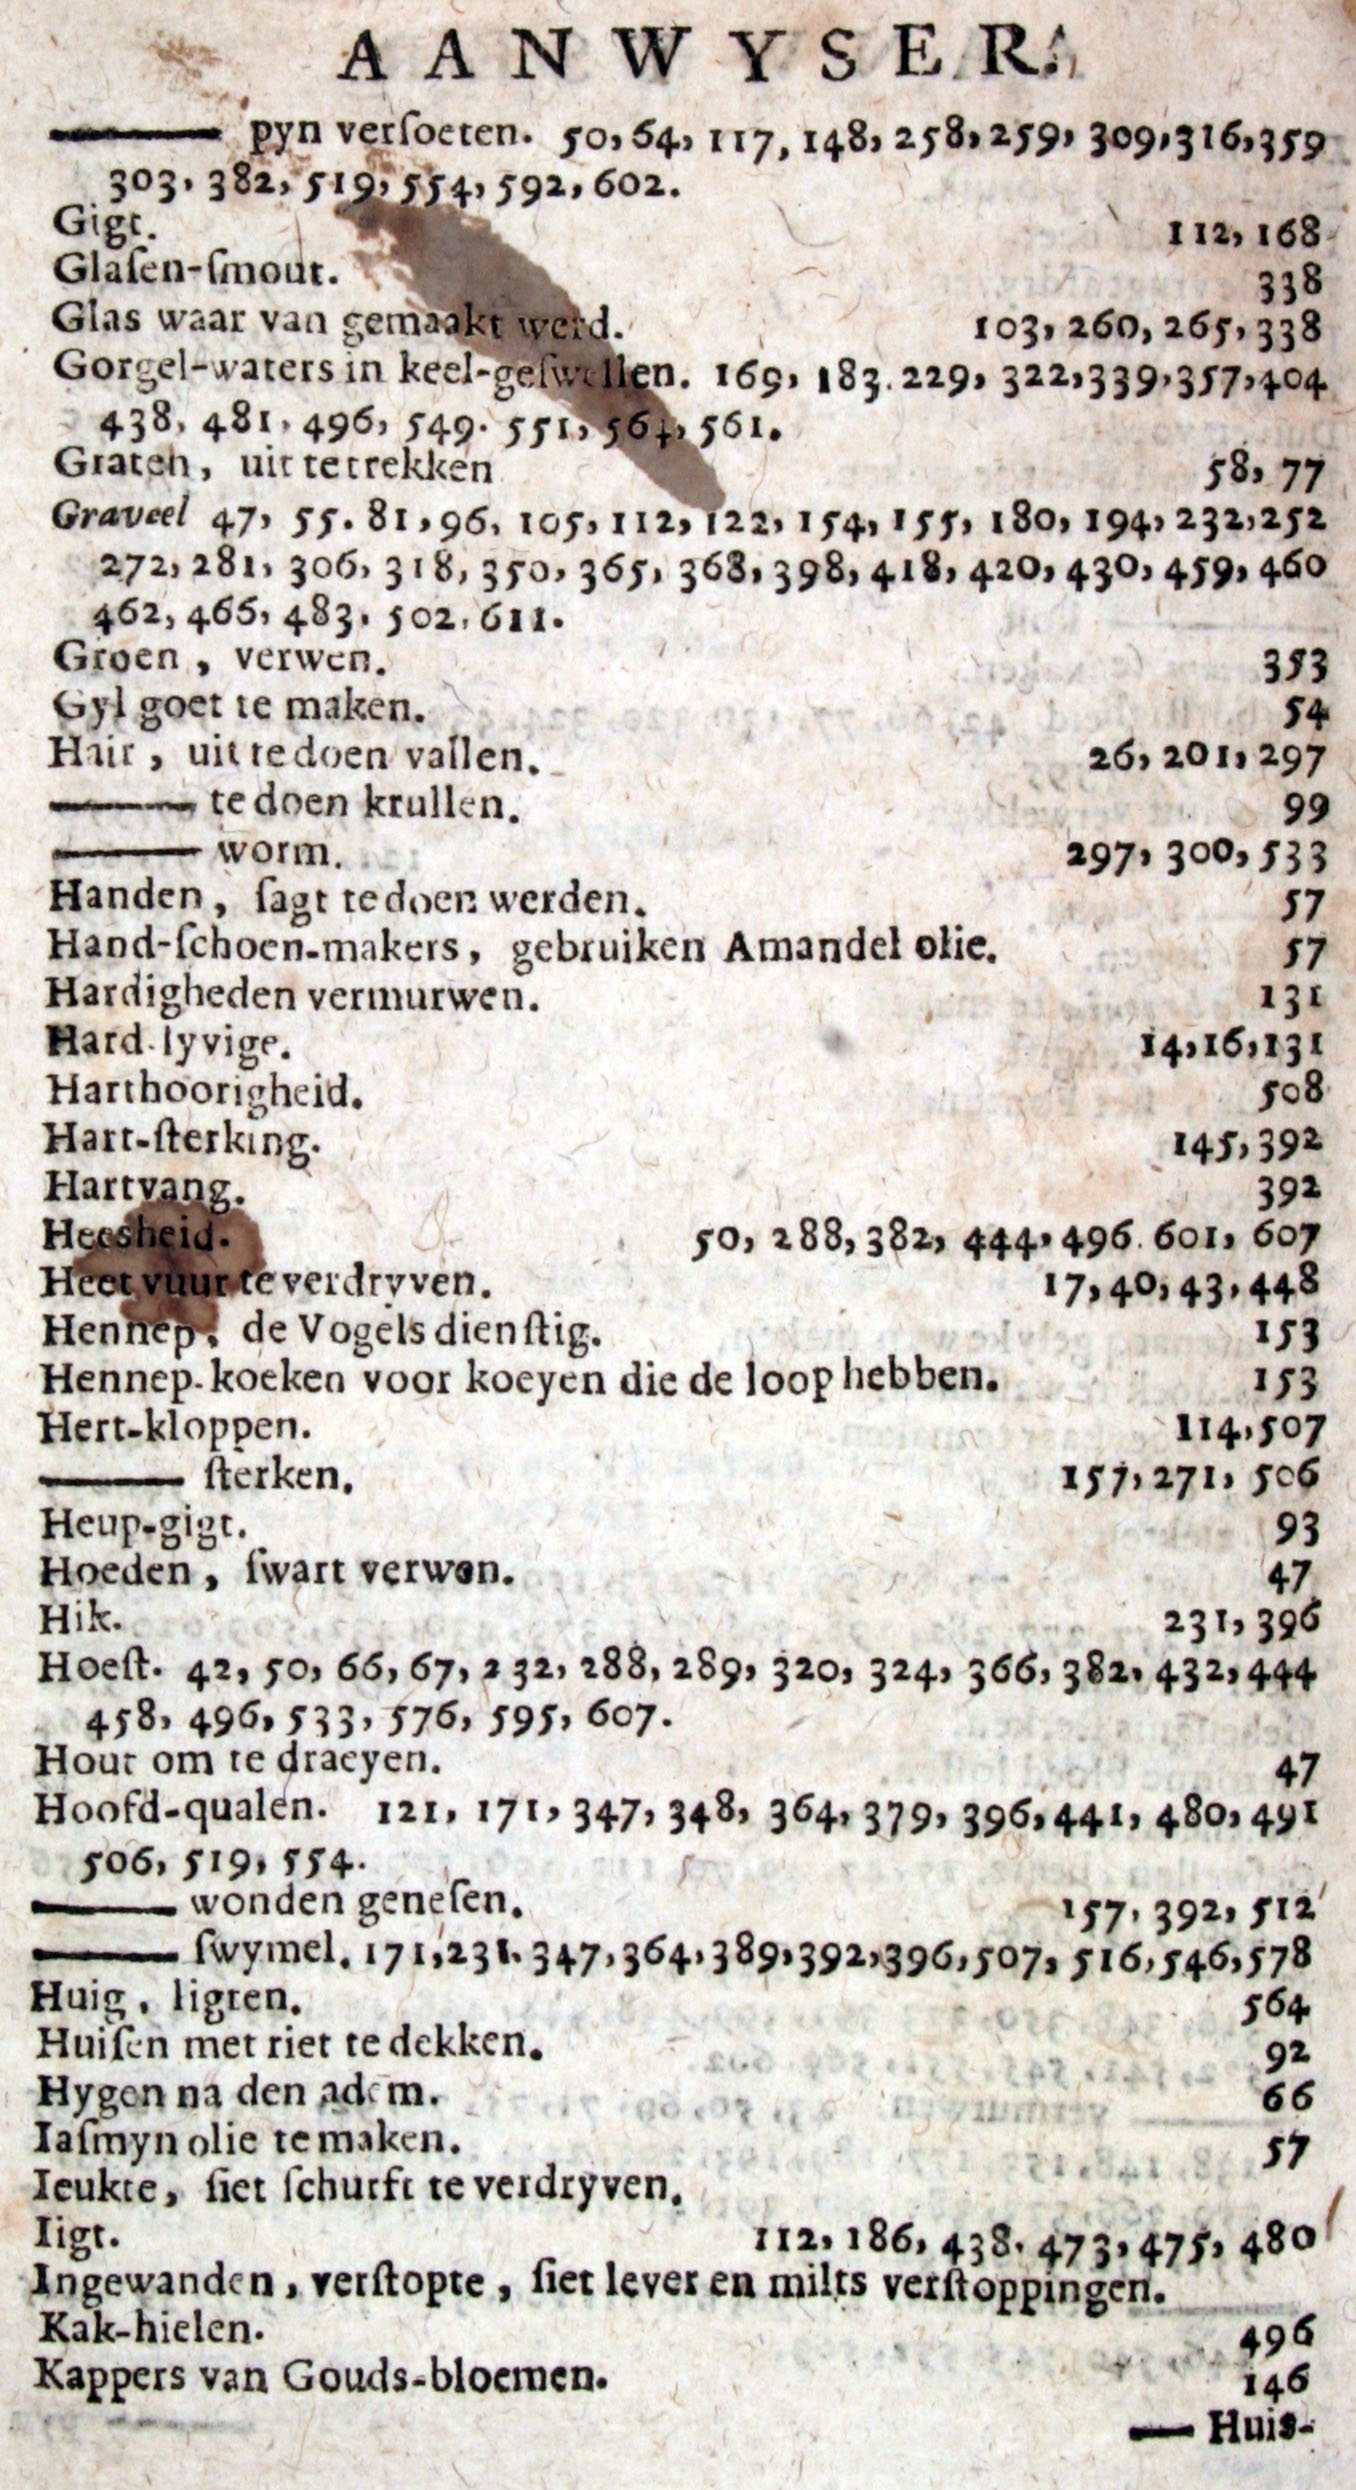 AANWYSER.
——— pyn verſoeten. 50, 64, 117, 148, 258, 259, 309, 316, 359
303, 382, 519, 554, 592, 602.
Gigt. 112, 168
Glaſen-ſmout. 338
Glas waar van gemaakt werd. 103, 260, 265, 338
Gorgel-waters in keel-geſwellen. 169, 183. 229, 322, 339, 357, 404
438, 481, 496, 549. 551, 564, 561.
Graten, uit te trekken 58, 77
Graveel 47, 55. 81, 96, 105, 112, 122, 154, 155, 180, 194, 232, 252
272, 281, 306, 318, 350, 365, 368, 398, 418, 420, 430, 459, 460
462, 466, 483, 502, 611.
Groen, verwen. 353
Gyl goet te maken. 54
Hair, uit te doen vallen. 26, 201, 297
——— te doen krullen. 99
——— worm. 297, 300, 533
Handen, ſagt te doen werden. 57
Hand-ſchoen-makers, gebruiken Amandel olie. 57
Hardigheden vermurwen. 131
Hard-lyvige. 14, 16, 131
Harthoorigheid. 508
Hart-ſterking. 145, 392
Hartvang. 392
Heesheid. 50, 288, 382, 444, 496. 601, 607
Heet vuur te verdryven. 17, 40, 43, 448
Hennep, de Vogels dienſtig. 153
Hennep-koeken voor koeyen die de loop hebben. 153
Hert-kloppen. 114, 507
——— ſterken. 157, 271, 506
Heup-gigt. 93
Hoeden, ſwart verwen. 47
Hik. 231, 396
Hoeſt. 42, 50, 66, 67, 232, 288, 289, 320, 324, 366, 382, 432, 444
458, 496, 533, 576, 595, 607.
Hout om te draeyen. 47
Hoofd-qualen. 121, 171, 347, 348, 364, 379, 396, 441, 480, 491
506, 519, 554.
——— wonden geneſen. 157, 392, 512
——— ſwymel. 171, 231. 347, 364, 389, 392, 396, 507, 516, 546, 578
Huig, ligten. 564
Huiſen met riet te dekken. 92
Hygen na den adem. 66
Iaſmyn olie te maken. 57
Ieukte, ſiet ſchurft te verdryven.
Iigt. 112, 186, 438, 473, 475, 480
Ingewanden, verſtopte, ſiet lever en milts verſtoppingen.
Kak-hielen. 496
Kappers van Gouds-bloemen. 146
— Huis-